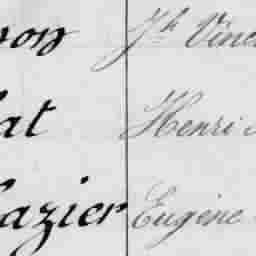 non Jh Vinc
lat Henri
lazier Eugène